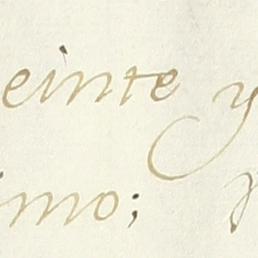 einte y
imo;